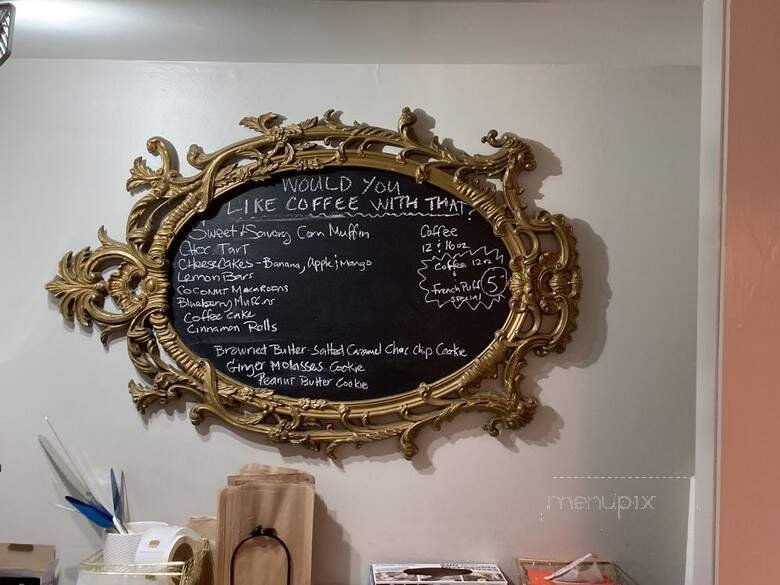 WOULD YOU
LIKE COFFEE WITH THAT?
Sweet & Savory Corn Muffin
Choc. Tart
Cheesecakes - Banana, Apple & Mango
Lemon Bars
Coconut Macaroons
Blueberry Muffins
Coffee Cake
Cinnamon Rolls
Browned Butter-Salted Caramel Choc Chip Cookie
Ginger Molasses Cookie
Peanut Butter Cookie
Coffee
12 & 16 oz
Coffee 12 oz
&
French Puff 5
special
menupix